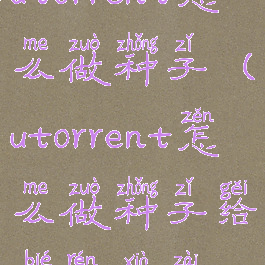 utorrent怎
me zuò zhǒng zǐ
么做种子(
zěn
utorrent怎
me zuò zhǒng zǐ gěi
么做种子给
bié rén xià zài